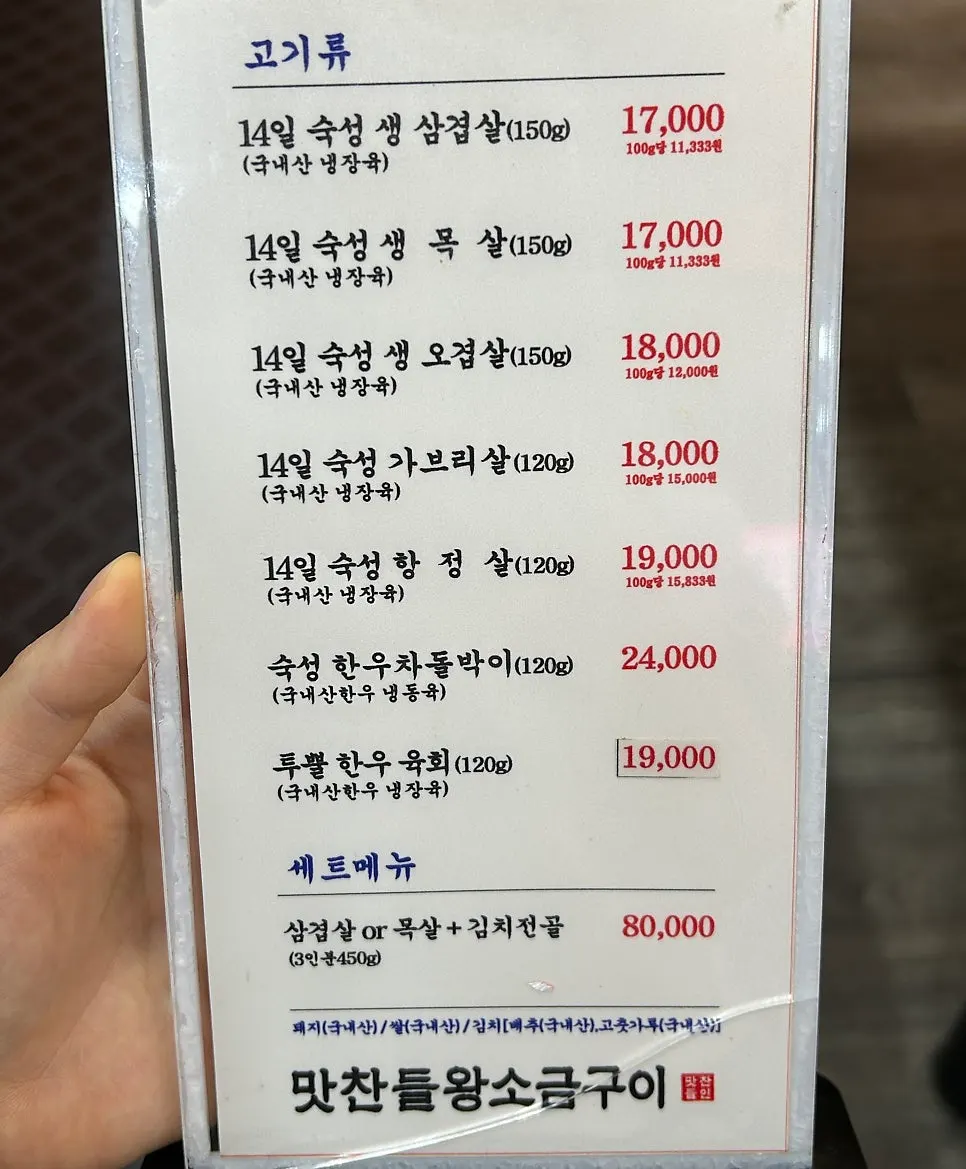 고기류
14일 숙성 생 삼겹살(150g) 17,000
(국내산 냉장육) 100g당 11,333원
14일 숙성 생 목 살(150g) 17,000
(국내산 냉장육) 100g당 11,333원
14일 숙성 생 오겹살(150g) 18,000
(국내산 냉장육) 100g당 12,000원
14일 숙성 가브리살(120g) 18,000
(국내산 냉장육) 100g당 15,000원
14일 숙성 항 정 살(120g) 19,000
(국내산 냉장육) 100g당 15,833원
숙성 한우차돌박이(120g) 24,000
(국내산한우 냉동육)
투뿔 한우 육회(120g) 19,000
(국내산한우 냉장육)
세트메뉴
삼겹살 or 목살 + 김치전골 80,000
(3인분450g)
돼지(국내산)/쌀(국내산)/김치[배추(국내산),고춧가루(국내산)]
맛찬들왕소금구이 맛찬들인